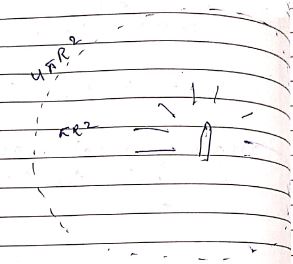 4πR²
πR²